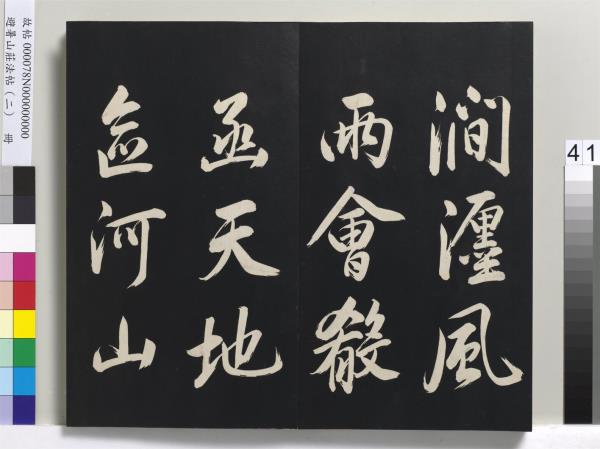 澗瀍風
雨會殽
函天地
河山
故帖 000078N000000000
避暑山莊法帖(二) 冊
41